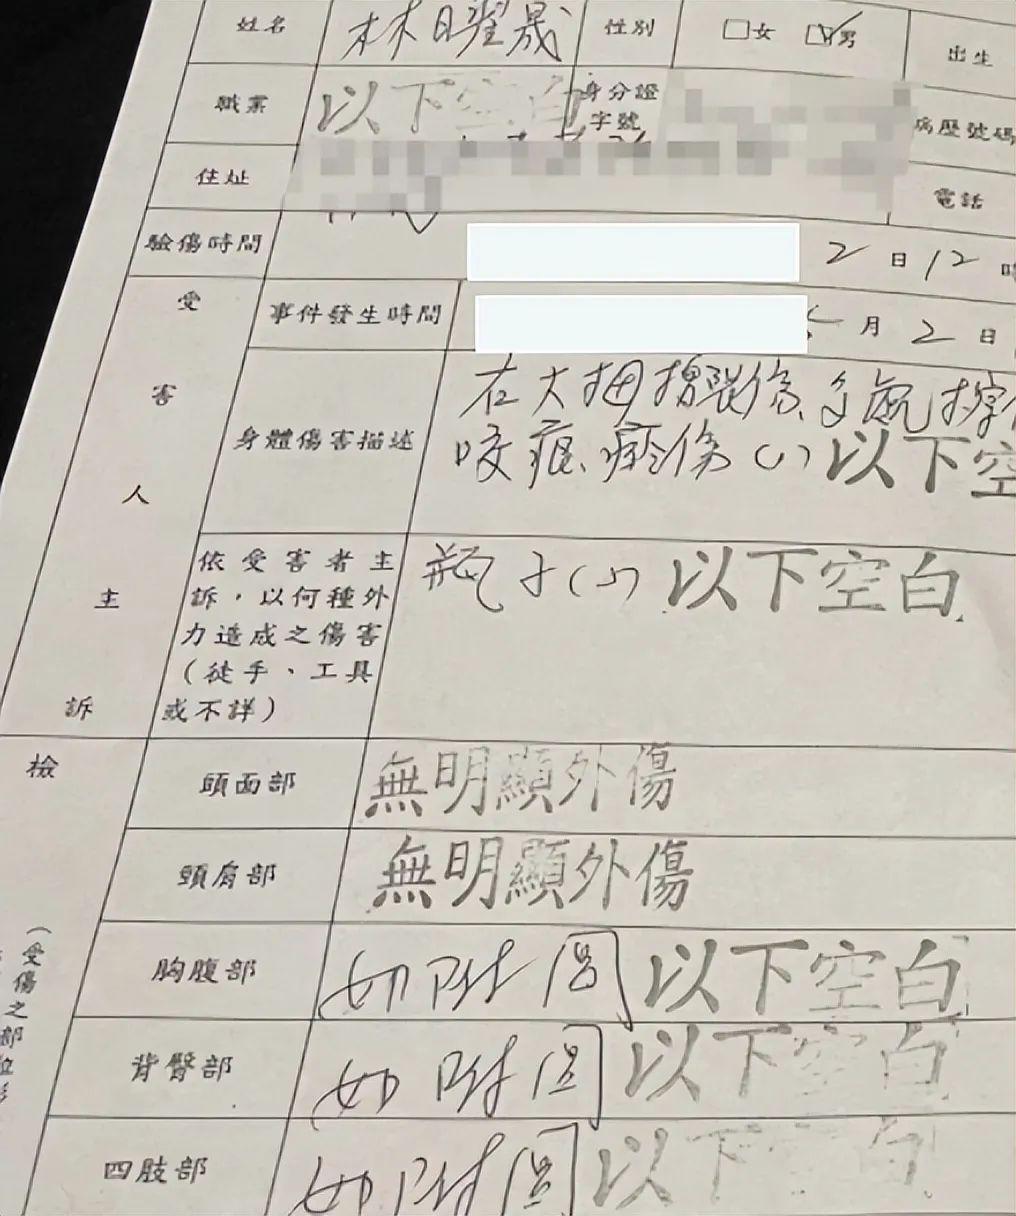 姓名 林曜晟 性別 □女 ☑男 出生
職業 以下空白 身分證字號 病歷號碼
住址 電話
驗傷時間 2日12時
受害人主訴
事件發生時間 5月2日
身體傷害描述 右大拇撕裂傷、多處擦
咬痕、瘀傷(以下空
依受害者主
訴,以何種外
力造成之傷害
(徒手、工具
或不詳)
瓶子 以下空白
檢
(受傷之部位
頭面部 無明顯外傷
頸肩部 無明顯外傷
胸腹部 如附圖 以下空白
背臀部 如附圖 以下空白
四肢部 如附圖 以下空白